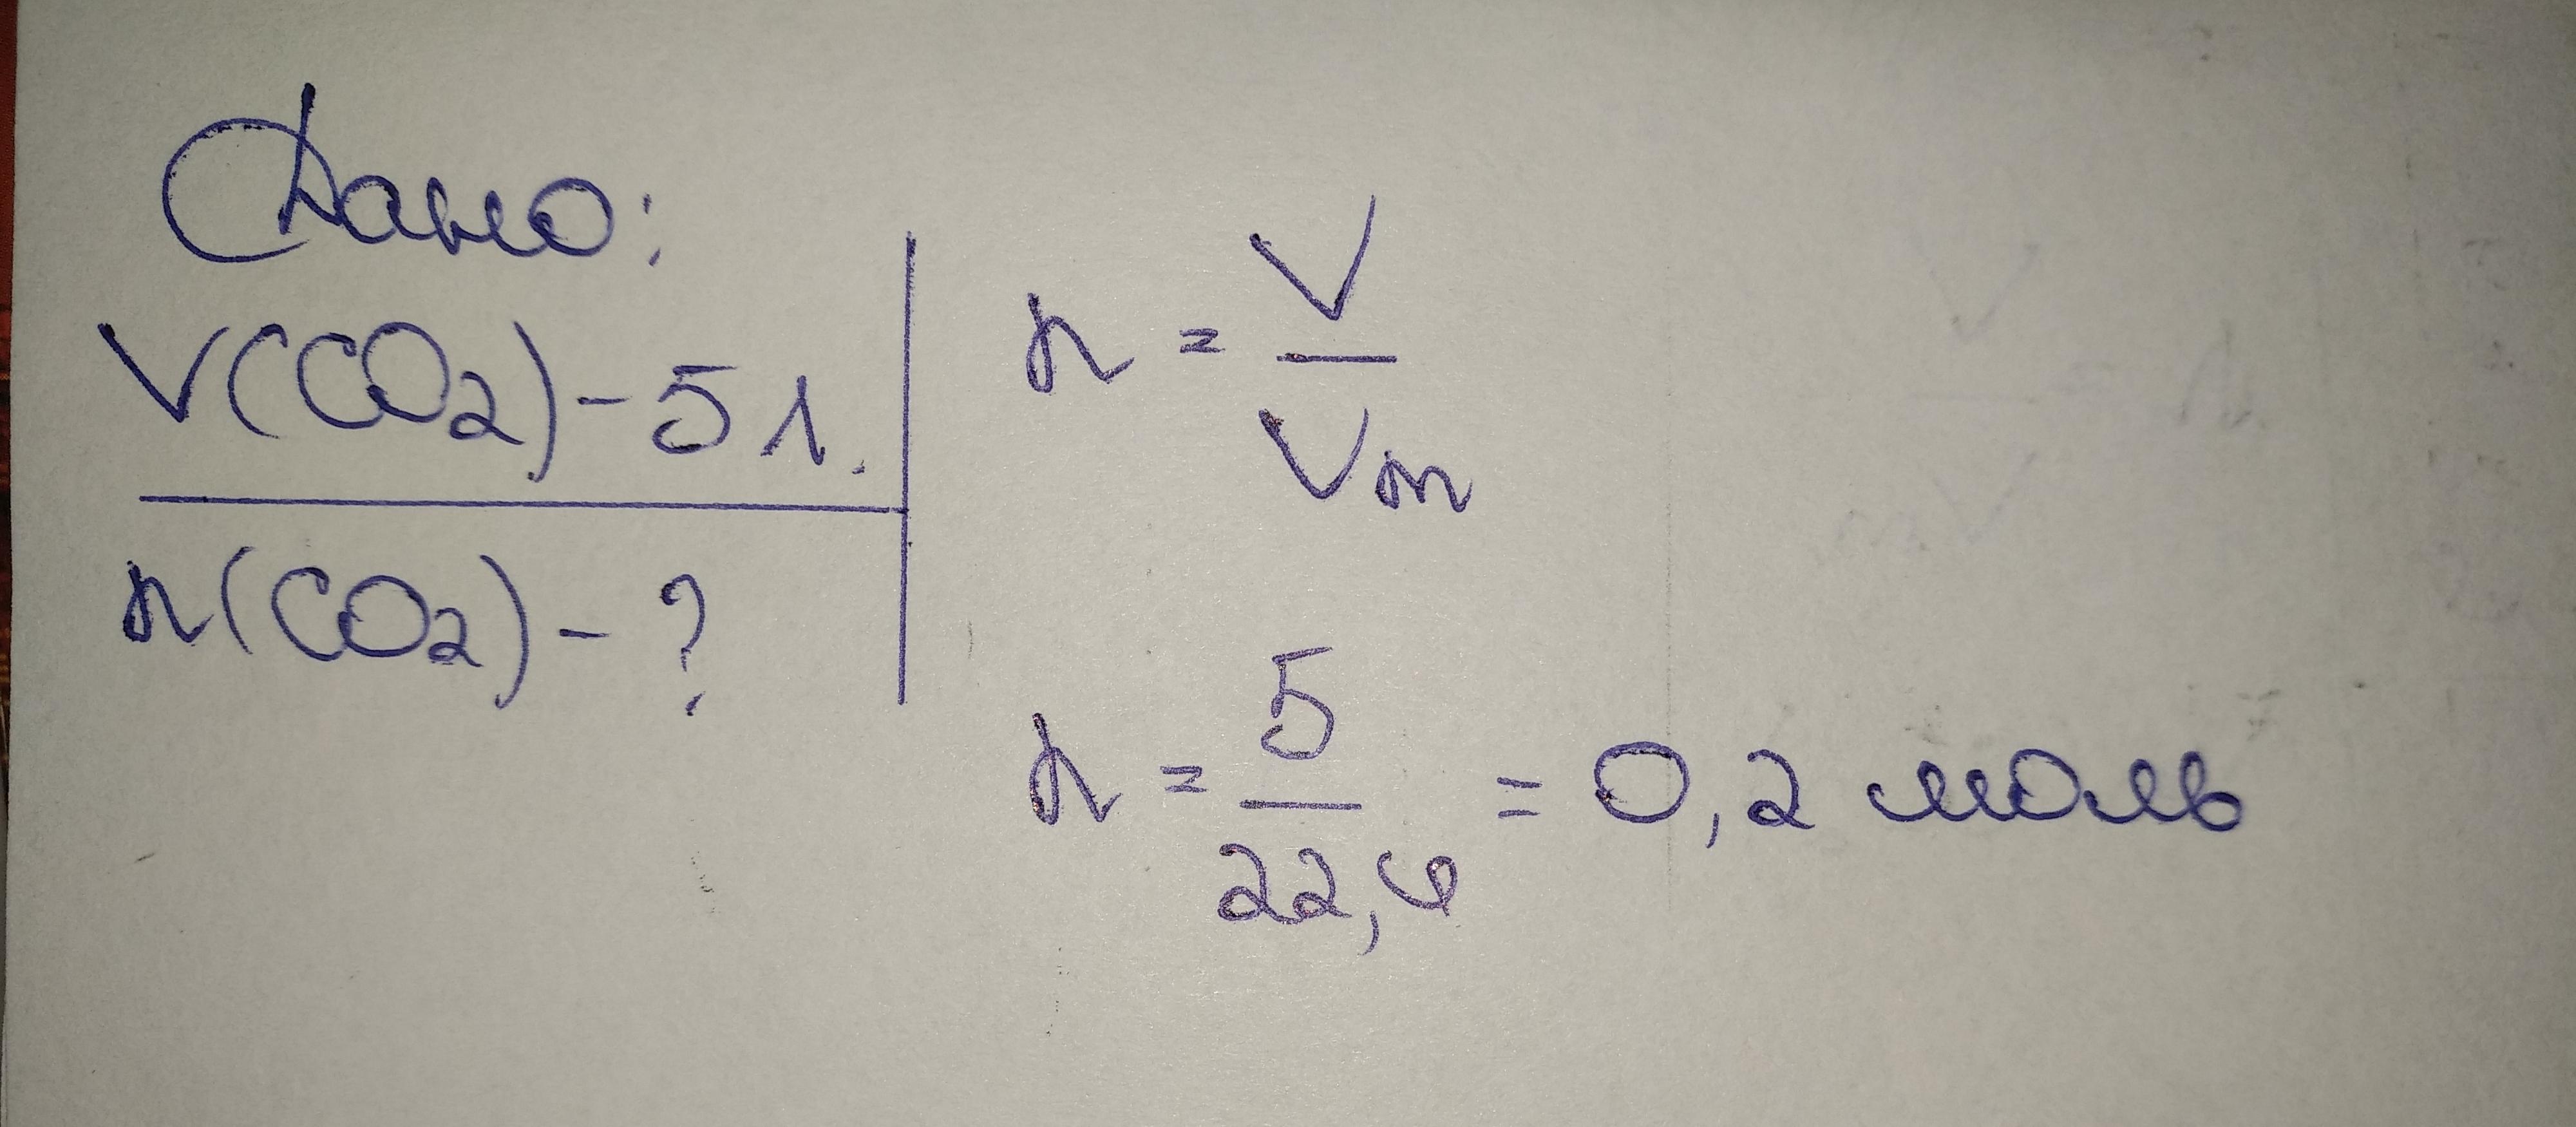 Дано:
V(CO2) - 5 л.
n(CO2) - ?
n = V / Vm
n = 5 / 22,4 = 0,2 моль